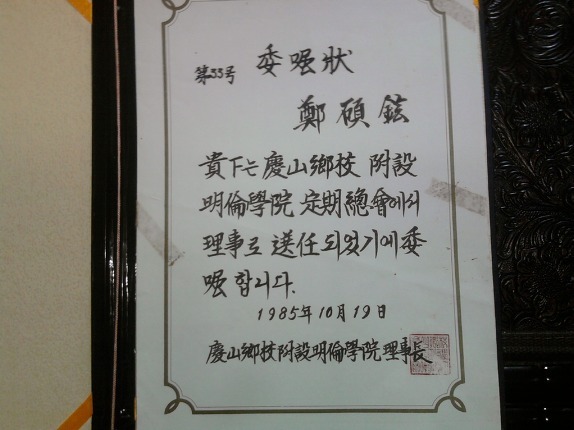 第33号 委嘱狀
鄭碩鉉
貴下는 慶山鄕校 附設
明倫學院 定期總會에서
理事로 選任되었기에 委
嘱합니다.
1985年 10月 19日
慶山鄕校附設明倫學院理事長